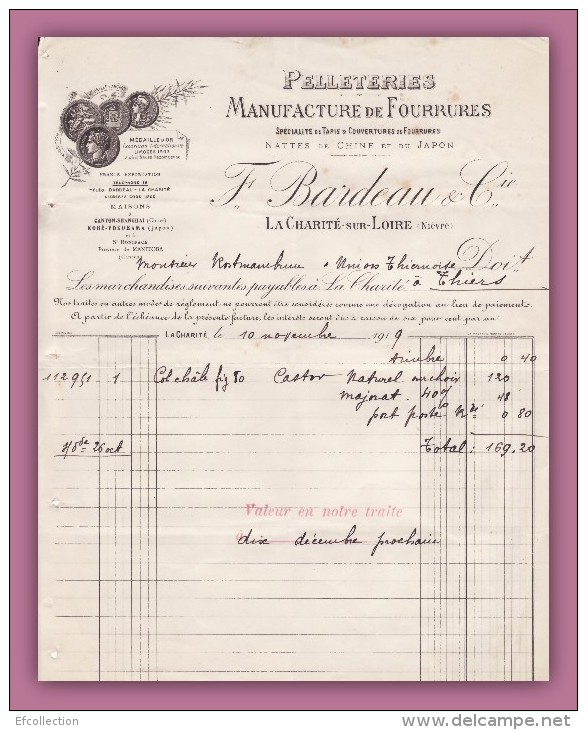 PELLETERIES
MANUFACTURE DE FOURRURES
SPÉCIALITÉ DE TAPIS & COUVERTURES DE FOURRURES
NATTES DE CHINE ET DU JAPON
F. Bardeau & Cie
LA CHARITÉ-SUR-LOIRE (Nièvre)
MÉDAILLE D'OR
LIMOGES 1903
FRANCE EXPORTATION
TÉLÉPHONE 18
TÉLÉG. BARDEAU-LA CHARITÉ
MAISONS
à
CANTON-SHANGHAI (Chine)
KOBÉ-YOKOHAMA (Japon)
et à
St BONIFACE
Province de MANITOBA
Monsieur à Union Thiernoise Doit
Les marchandises suivantes payables à La Charité à Thiers
Nos traites ou autres modes de règlement ne pourront être considérés comme une dérogation au lieu de paiement.
A partir de l'échéance de la présente facture, les intérêts seront dûs à raison de six pour cent par an.
LA CHARITÉ, le 10 novembre 1919
timbre 0 40
112951 1 Col châle fig 80 Castor Naturel surchoix 120
majorat. 40% 48
port poste 0 80
26 oct Total : 169.20
Valeur en notre traite
dix décembre prochain
Efcollection
delcampe.net